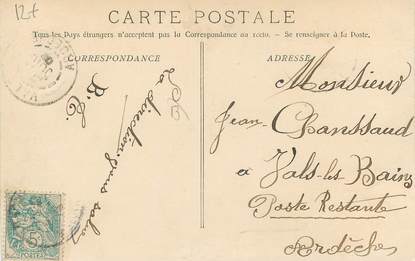 12f
CARTE POSTALE
Tous les Pays étrangers n'acceptent pas la Correspondance au recto. - Se renseigner à la Poste.
CORRESPONDANCE
ADRESSE
La direction vous salue
B. C
Monsieur
Jean Chanssaud
a Vals-les Bains
Poste Restante
Ardèche
5
POSTES